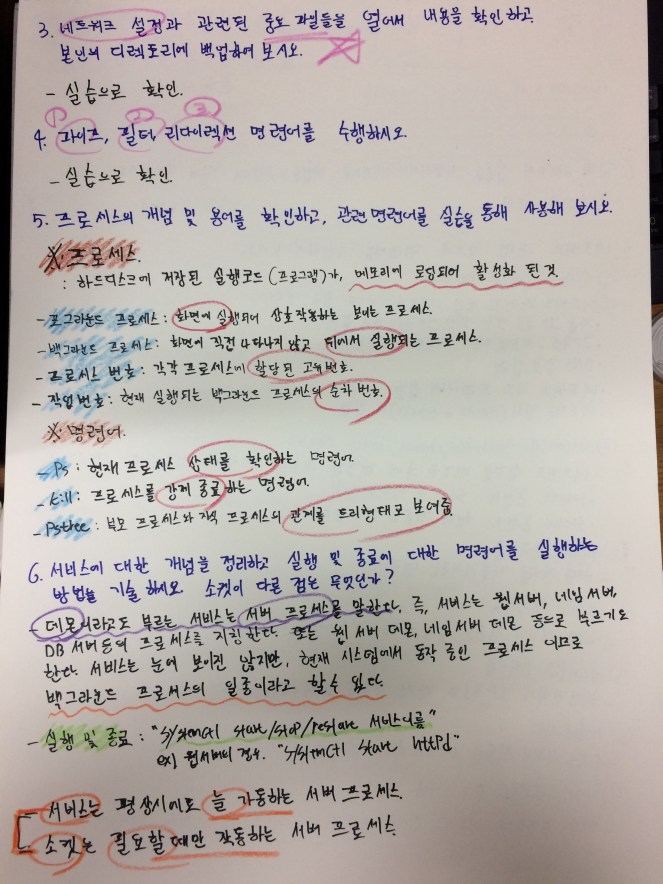 3. 네트워크 설정과 관련된 중요 파일들을 열어서 내용을 확인하고
본인의 디렉토리에 백업하여 보시오.
- 실습으로 확인.
① ② ③
4. 파이프, 필터, 리다이렉션 명령어를 수행하시오.
- 실습으로 확인.
5. 프로세스의 개념 및 용어를 확인하고, 관련 명령어를 실습을 통해 사용해 보시오.
※ 프로세스.
: 하드디스크에 저장된 실행코드(프로그램)가, 메모리에 로딩되어 활성화 된 것
- 포그라운드 프로세스 : 화면에 실행되어 상호작용하는 보이는 프로세스.
- 백그라운드 프로세스 : 화면에 직접 나타나지 않고 뒤에서 실행되는 프로세스.
- 프로세스 번호 : 각각 프로세스에 할당된 고유번호.
- 작업번호 : 현재 실행되는 백그라운드 프로세스의 순차 번호.
※ 명령어.
- Ps : 현재 프로세스 상태를 확인하는 명령어.
- kill : 프로세스를 강제 종료하는 명령어.
- Pstree : 부모 프로세스와 자식 프로세스의 관계를 트리형태로 보여줌.
6. 서비스에 대한 개념을 정리하고 실행 및 종료에 대한 명령어를 실행하는
방법을 기술 하시오. 소켓이 다른 점은 무엇인가?
- 데몬이라고도 부르는 서비스는 서버 프로세스를 말한다. 즉, 서비스는 웹서버, 네임서버,
DB서버 등의 프로세스를 지칭한다. 또는 웹 서버 데몬, 네임서버 데몬 등으로 부르기도
한다. 서비스는 눈에 보이진 않지만, 현재 시스템에서 동작 중인 프로세스 이므로
백그라운드 프로세스의 일종이라고 할수 있다.
- 실행 및 종료 : "systemctl start/stop/restart 서비스이름"
ex) 웹서버의 경우. "systemctl start httpd"
- 서비스는 평상시에도 늘 가동하는 서버 프로세스.
- 소켓은 필요할 때만 작동하는 서버 프로세스.